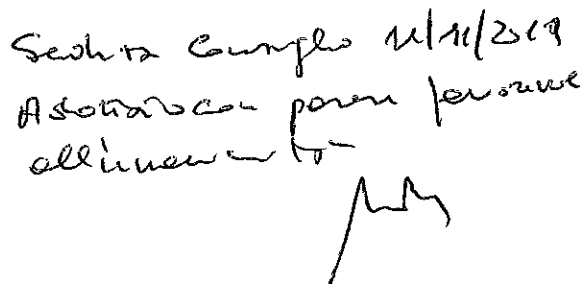 Seduta Consiglio 11/11/2019
Adottato con parere favorevole
all'unanimità